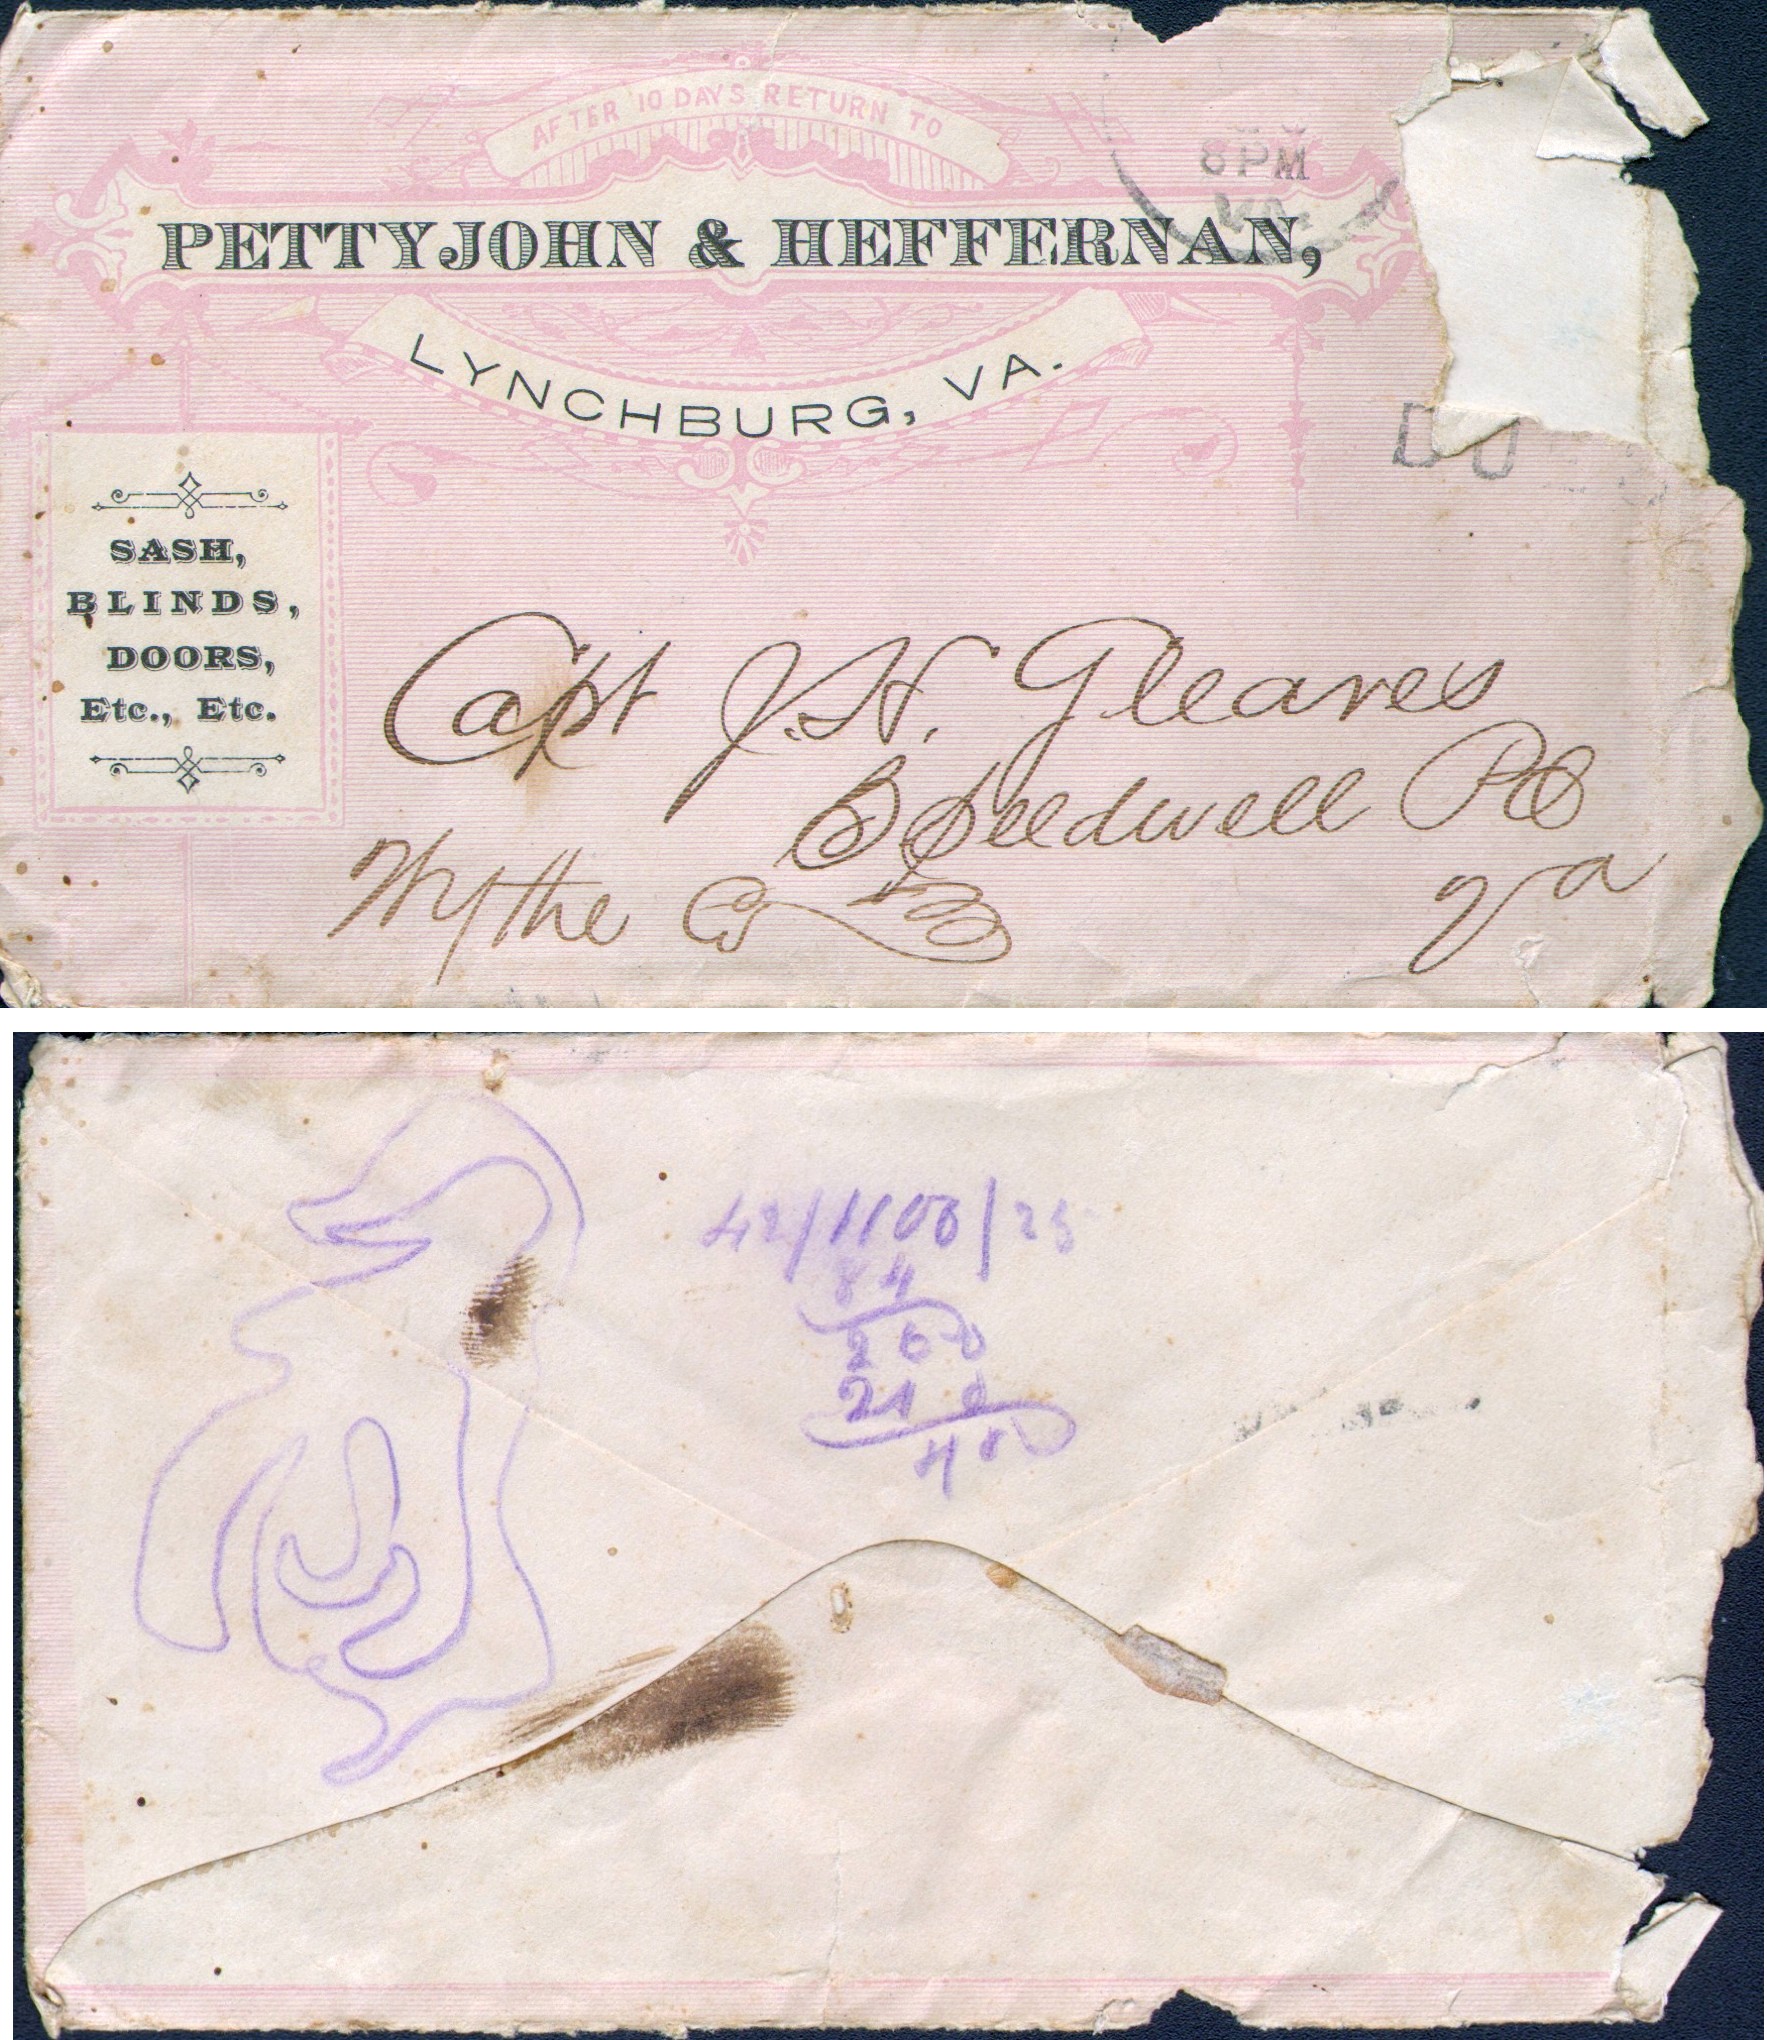 AFTER 10 DAYS RETURN TO
PETTYJOHN & HEFFERNAN,
LYNCHBURG, VA.
8 PM
VA.
DU
SASH,
BLINDS,
DOORS,
Etc., Etc.
Capt J. H. Gleaves
Speedwell PO
Wythe Co
Va
42/1100/25
84
260
210